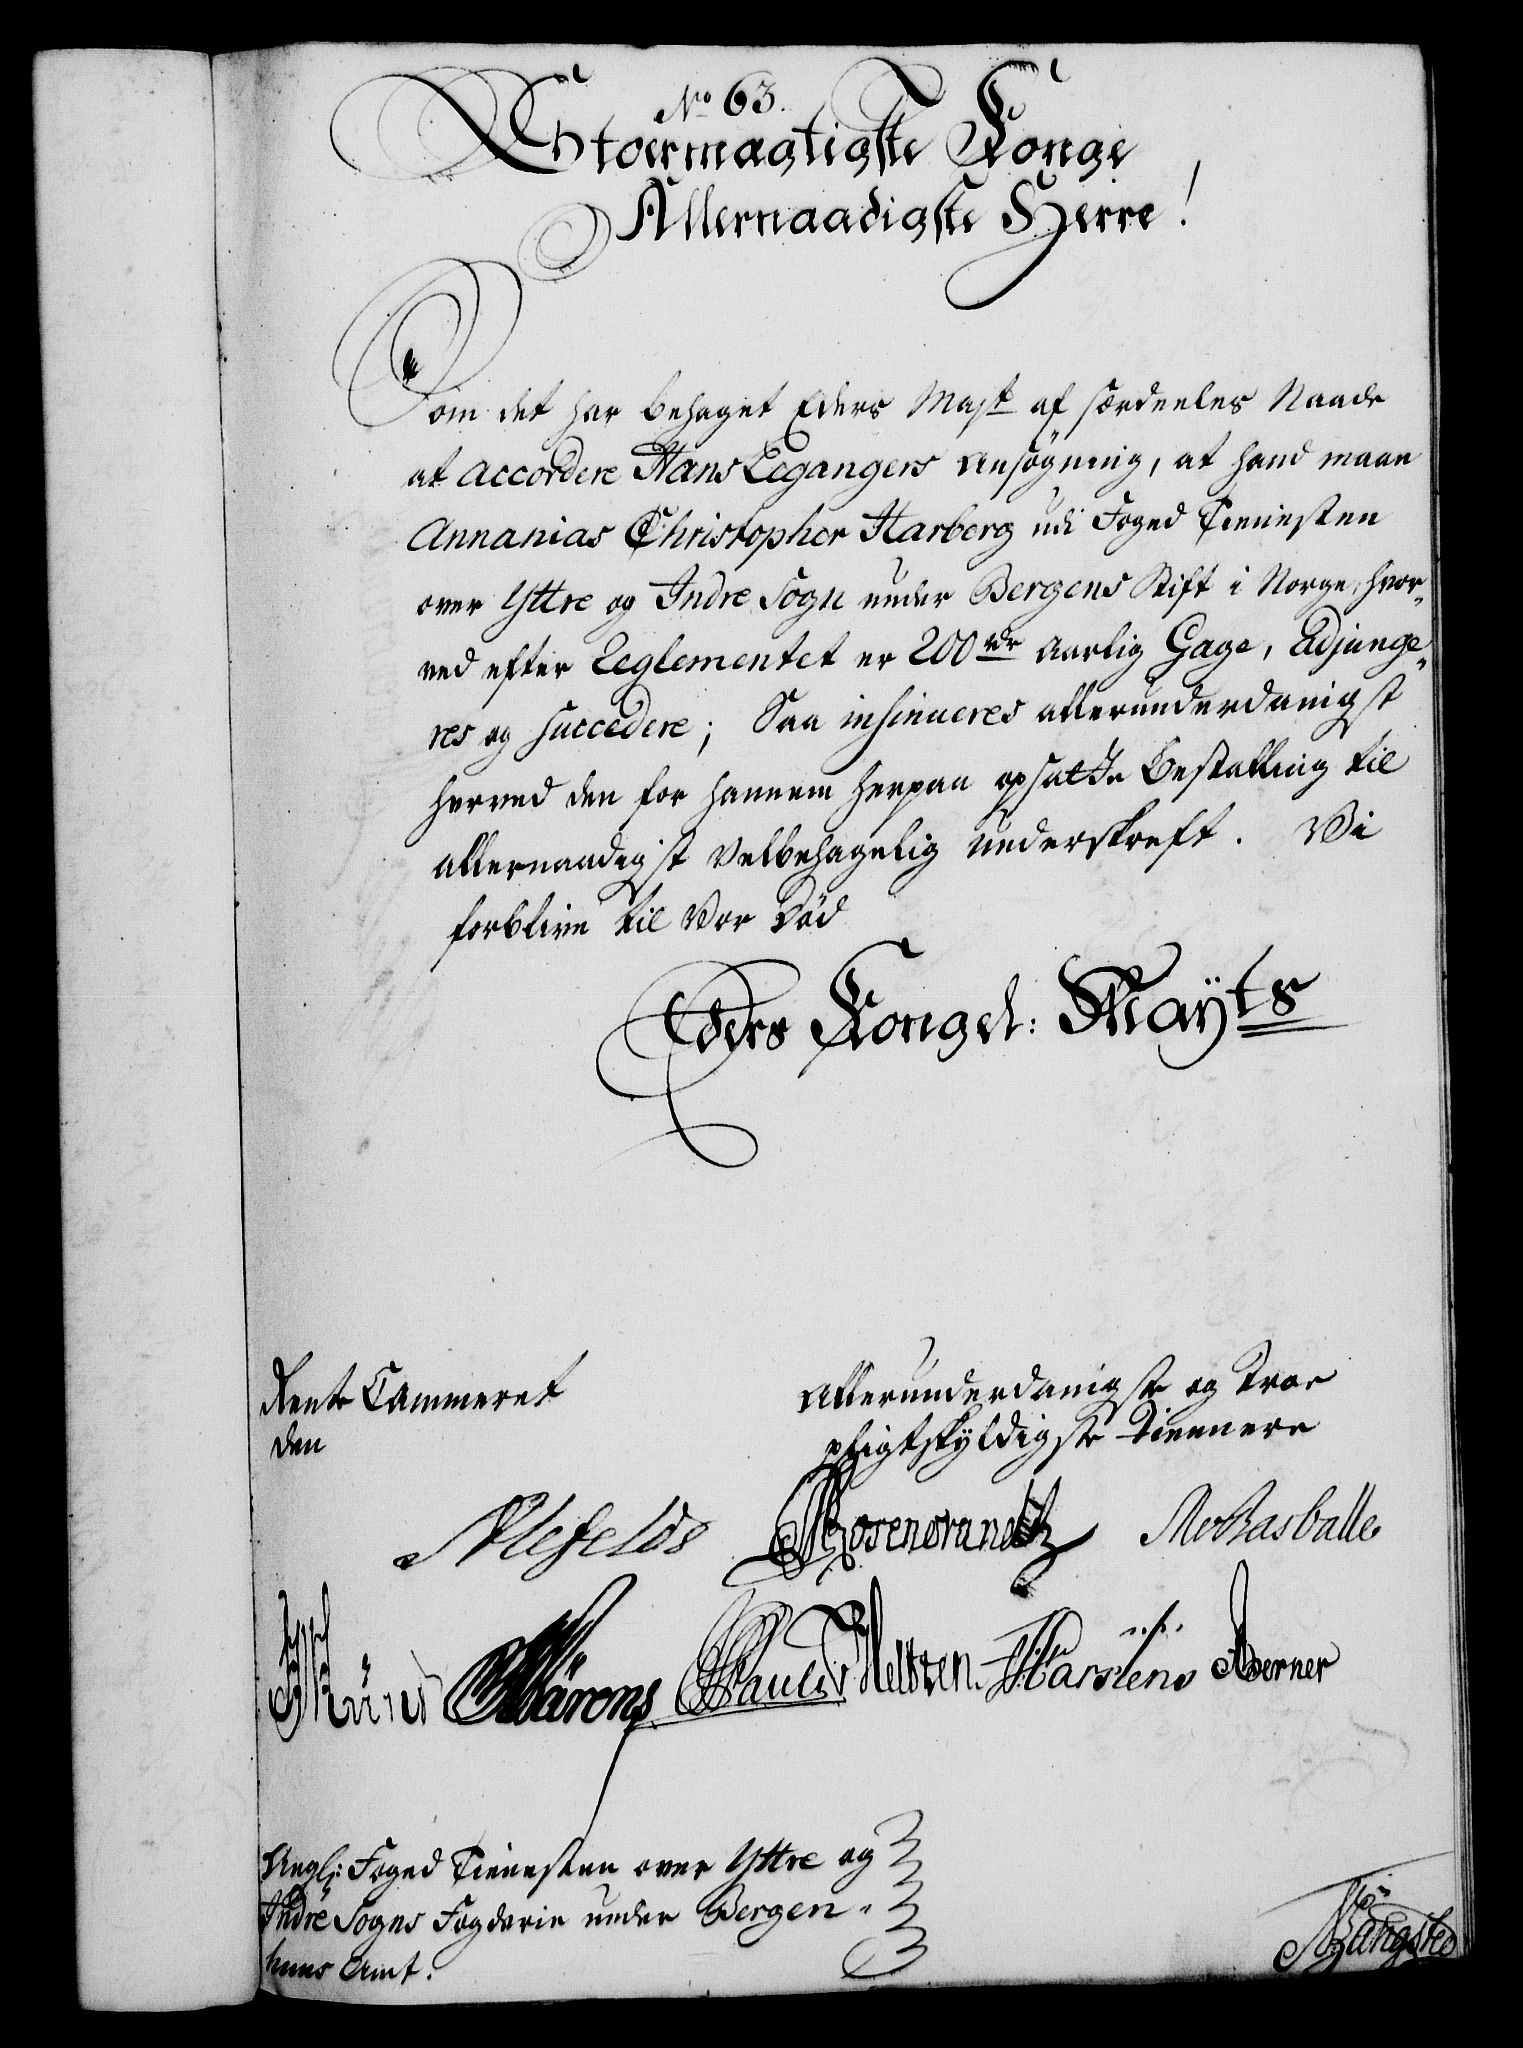 No 63.
Stoermagtigste Konge
Allernaadigste Herre!
Som det har behaget Eders Mayt af særdeeles Naade
at accordere Hans Legangers Ansøgning, at hand maae
Annanias Christopher Harberg udi Foged Tienisten
over Yttre og Indre Sogn under Bergens Stift i Norge, hvor-
ved efter Reglementet er 200 rdr Aarlig Gage, Adjunge-
res og succedere; Saa insinueres allerunderdanigst
herved den for hannem herpaa opsatte Bestalling til
allernaadigst Velbehagelig underskreft. Vi
forblive til Vor Død
Eders Kongel: Mayts
Rente Cammeret
den
Allerunderdanigste og Troe
pligtskyldigste Tiennere
Alefeldt Rosencrandtz Rasballe
Pauli Heltzen. Karstens Berner
Angl: Foged Tienesten over Yttre og
Indre Sogns Fogderie under Bergen-
huus Amt.
Bangsted